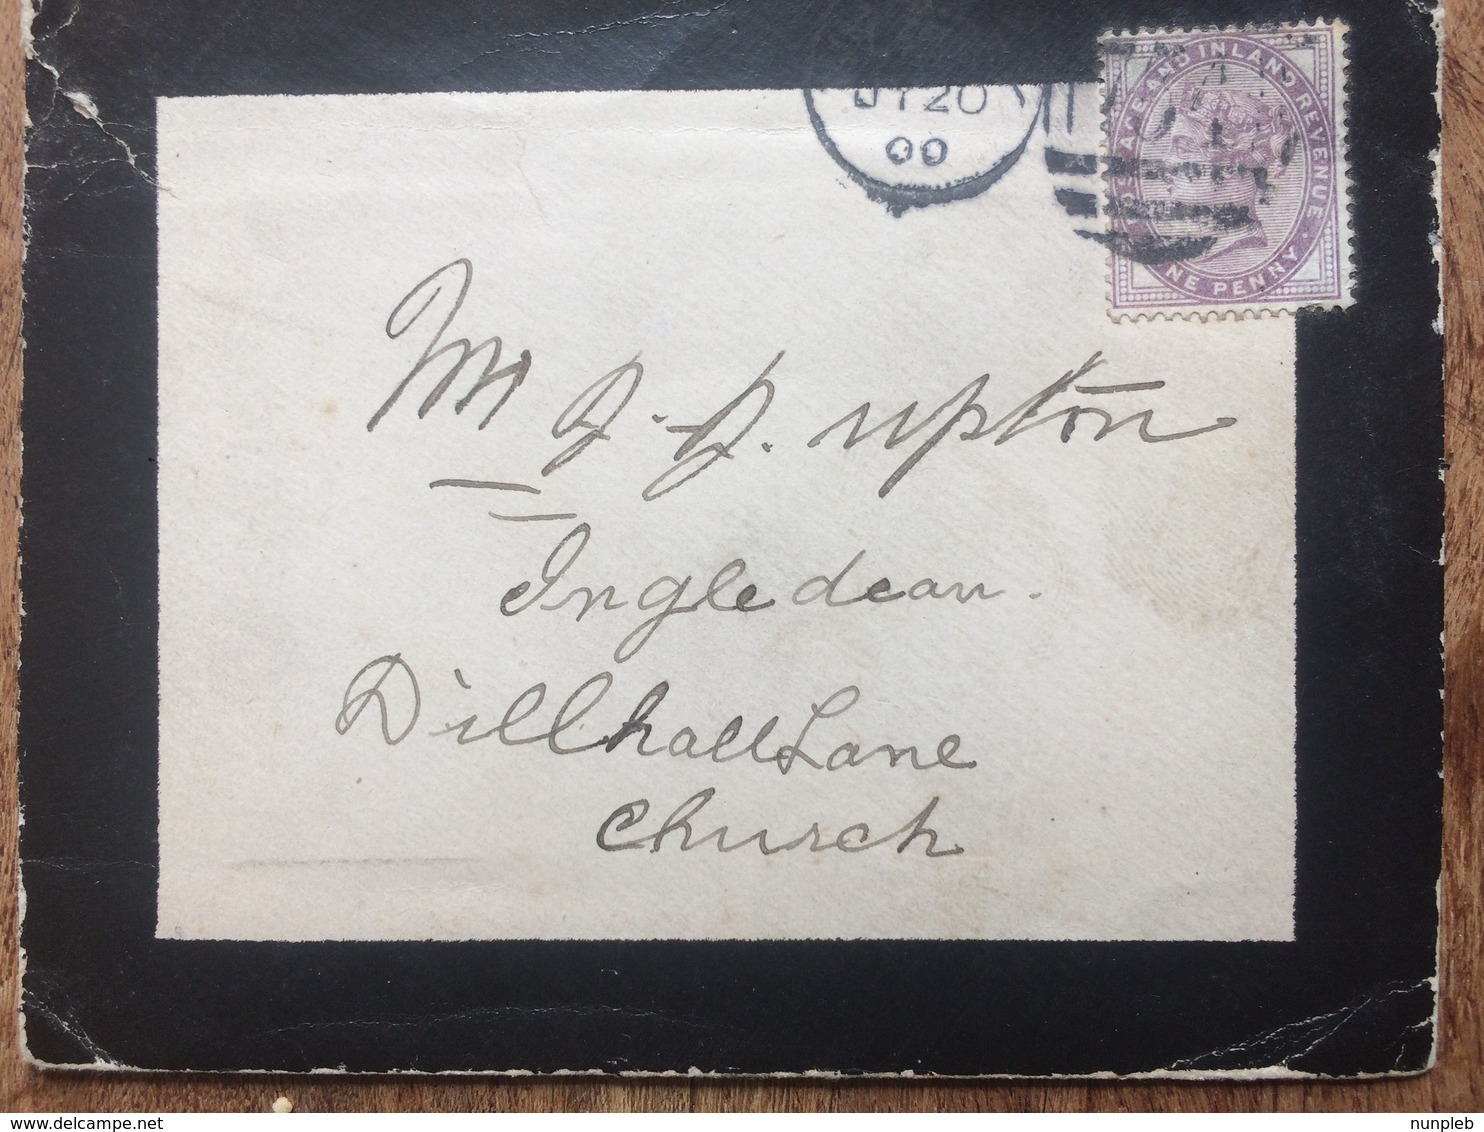 JY 20
00
POSTAGE AND INLAND REVENUE.
ONE PENNY
Mr J. J. Upton
Ingledean.
Dillhall Lane
Church
delcampe.net
nunpleb